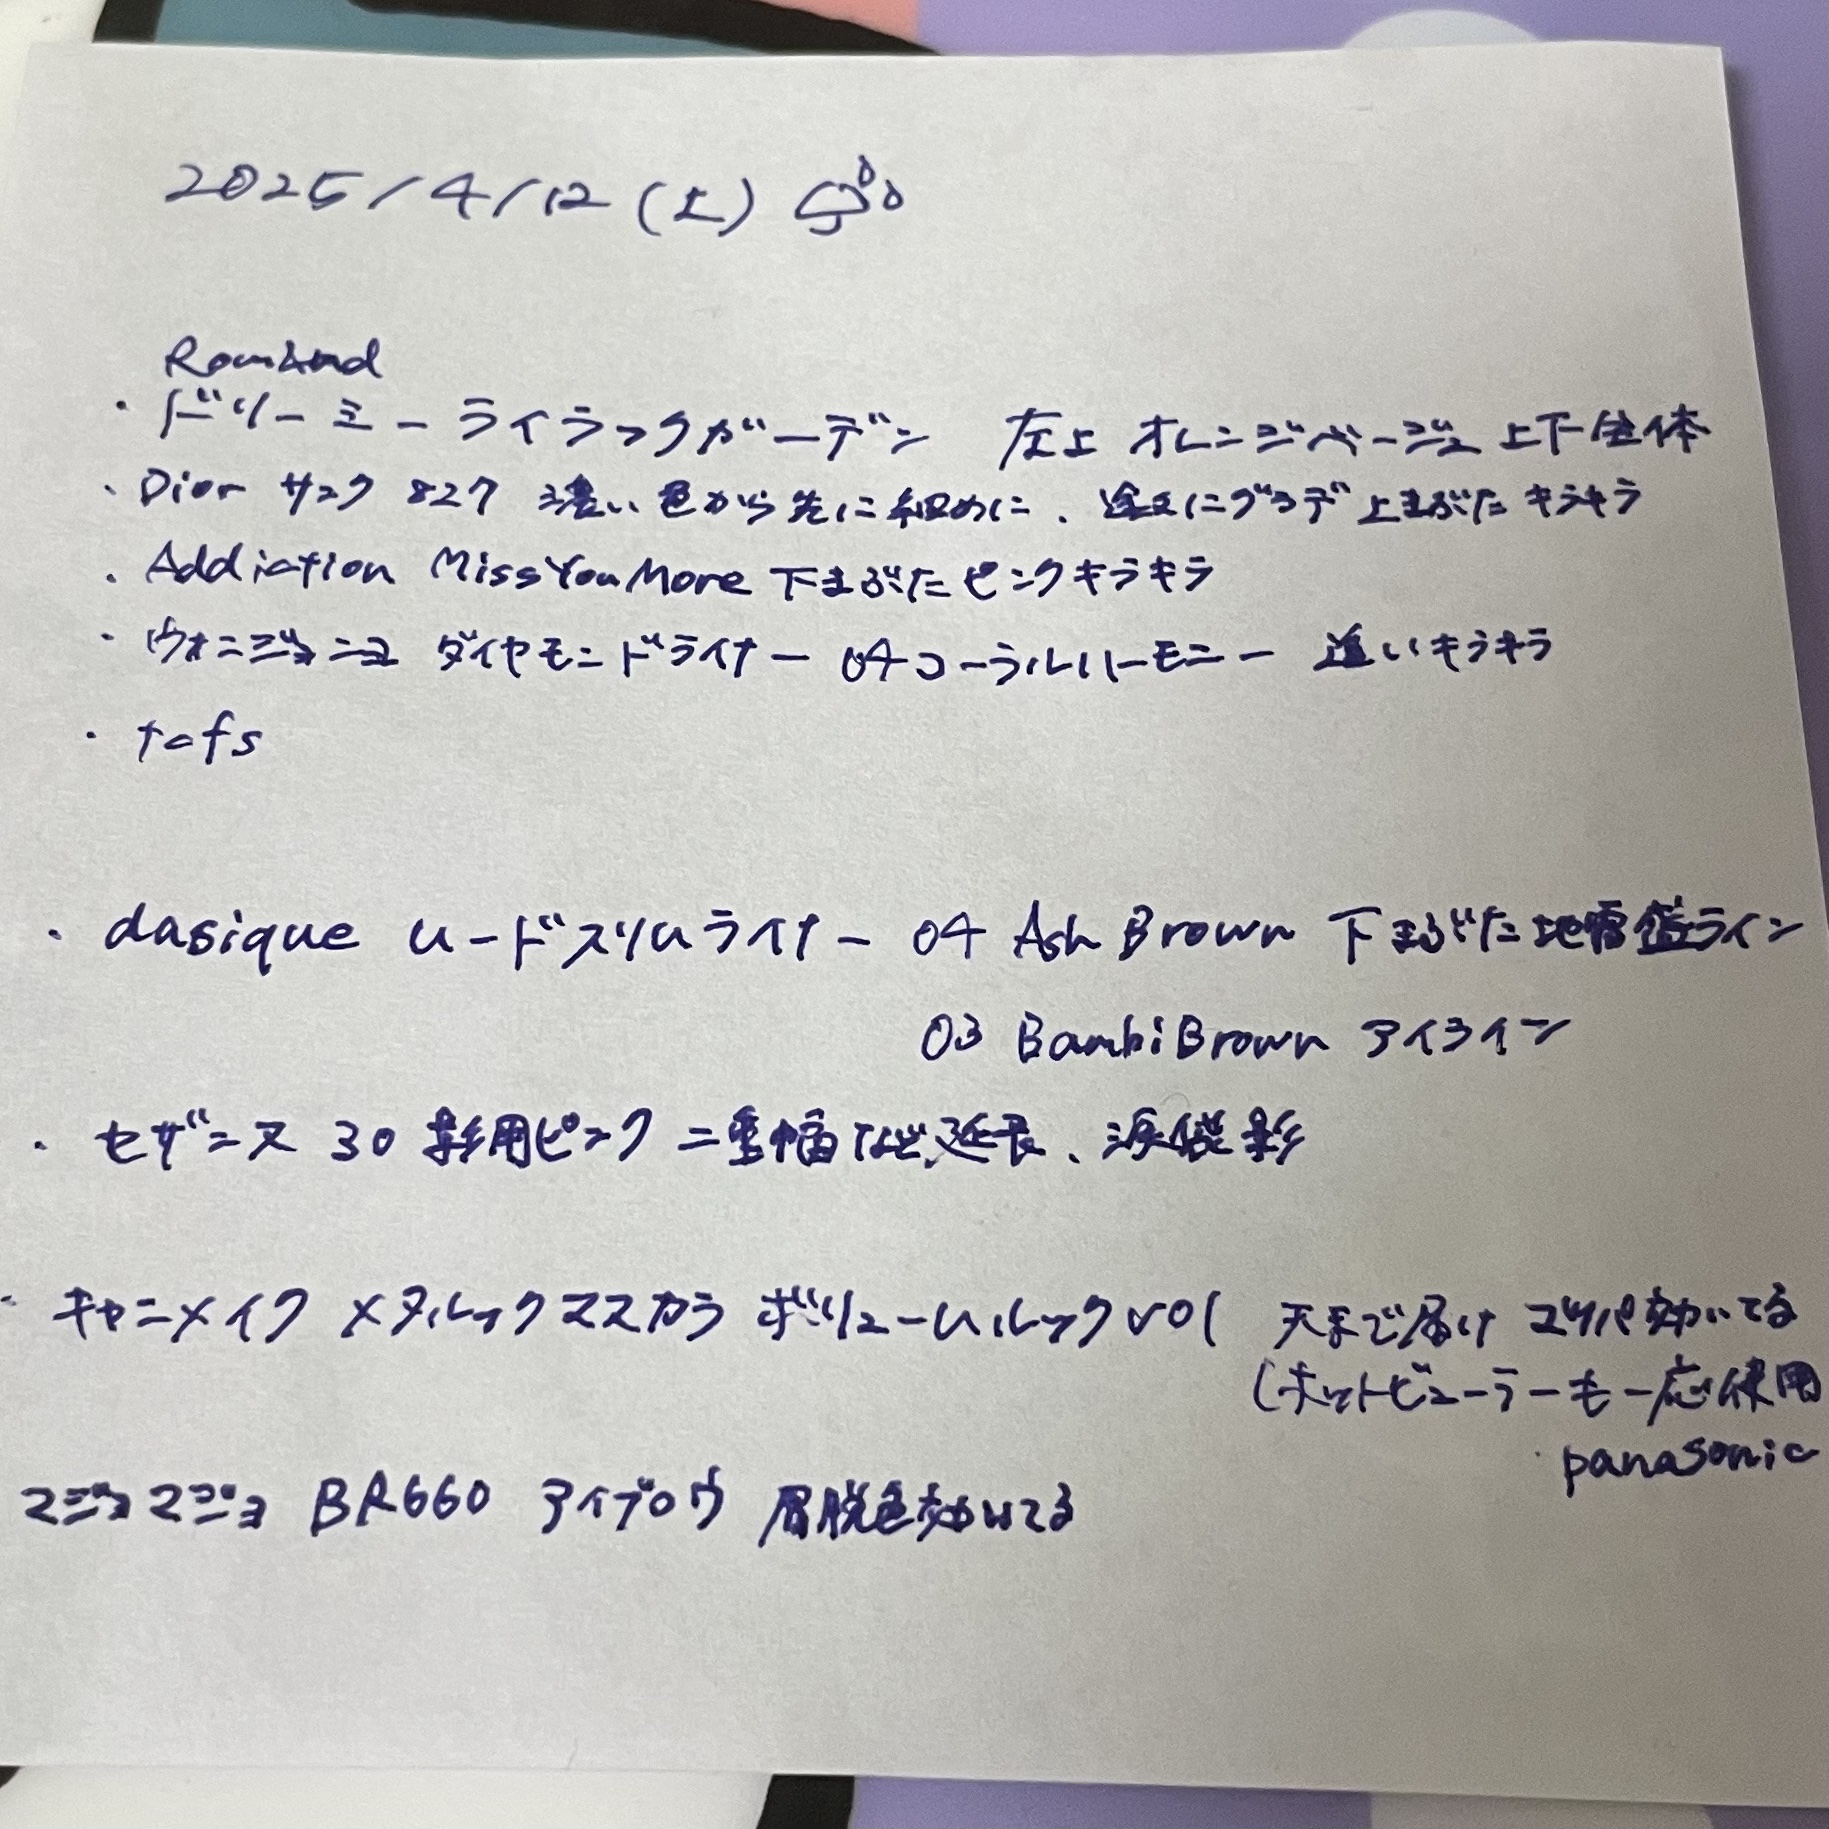 2025/4/12(土)
Romand
・ドリーミーライラックガーデン 左上 オレンジベージュ 上下全体
・Dior サンク 827 濃い色から先に細めに、逆にグラデ 上まぶた キラキラ
・Addiction Miss You More 下まぶたピンクキラキラ
・ウォンジョンヨ ダイヤモンドライナー 04コーラルハーモニー 追いキラキラ
・tofs
・dasique ムードスリムライナー 04 Ash Brown 下まぶた地雷盛ライン
03 Bambi Brown アイライン
・セザンヌ 30 影用ピンク 二重幅など延長、涙袋影
・キャンメイク メタルックマスカラ ボリュームルック v01 天まで届け マツパ効いてる
(ホットビューラーも一応使用
panasonic
マジョマジョ BR660 アイブロウ 眉脱色効いてる